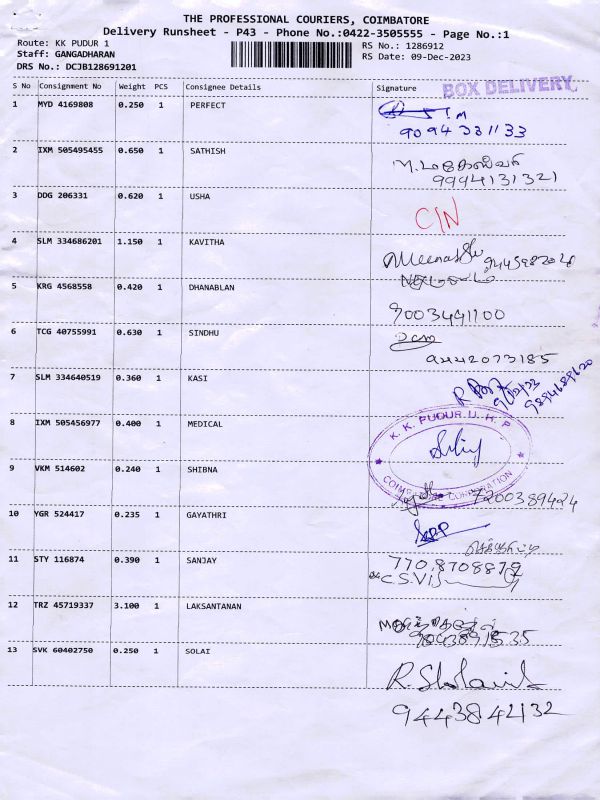 THE PROFESSIONAL COURIERS, COIMBATORE
Delivery Runsheet - P43 - Phone No.:0422-3505555 - Page No.:1
Route: KK PUDUR 1
RS No.: 1286912
Staff: GANGADHARAN
RS Date: 09-Dec-2023
DRS No.: DCJB128691201
BOX DELIVERY
S No Consignment No Weight PCS Consignee Details Signature
1 MYD 4169808 0.250 1 PERFECT
9094331133
2 IXM 505495455 0.650 1 SATHISH
9994131321
3 DDG 206331 0.620 1 USHA
C/N
4 SLM 334686201 1.150 1 KAVITHA
5 KRG 4568558 0.420 1 DHANABLAN
9003491100
6 TCG 40755991 0.630 1 SINDHU
9442073185
7 SLM 334640519 0.360 1 KASI
9/12/23
8 IXM 505456977 0.400 1 MEDICAL
K.K. PUDUR.U.H.P
CORPORATION
9 VKM 514602 0.240 1 SHIBNA
7200389424
10 YGR 524417 0.235 1 GAYATHRI
11 STY 116874 0.390 1 SANJAY
7708708879
12 TRZ 45719337 3.100 1 LAKSANTANAN
13 SVK 60402750 0.250 1 SOLAI
9443844132